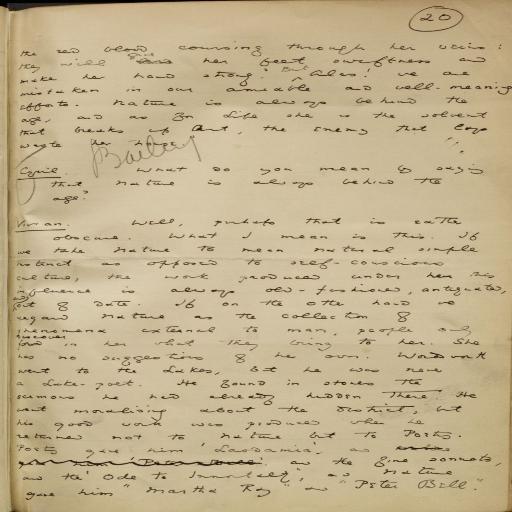 20
the red blood coursing through her veins:
they will give her feet swiftness and
make her hand strong. But Alas! we are
mistaken in our amiable and well-meaning
efforts. Nature is always behind the
age, and as for Life she is the solvent
that breaks up Art, the enemy that lays
waste her house.
Bailey
Cyril. What do you mean by saying
that Nature is always behind the
age?
Vivian. Well, perhaps that is rather
obscure. What I mean is this. If
we take Nature to mean natural simple
instinct as opposed to self-conscious
culture, the work produced under this
influence is always old-fashioned, antiquated,
and out of date. If on the other hand we
regard Nature as the collection of
phenomena external to man, people only
discover in her what they bring to her. She
has no suggestions of her own. Wordsworth
went to the Lakes, but he was never
a Lake-poet. He found in stones the
sermons he had already hidden there. He
went moralising about the district, but
his good work was produced when he
returned not to Nature but to Poetry.
Poetry gave him 'Laodamia', and
and the fine sonnets,
and the 'Ode to Immortality', and Nature
gave him "Martha Ray" and "Peter Bell."